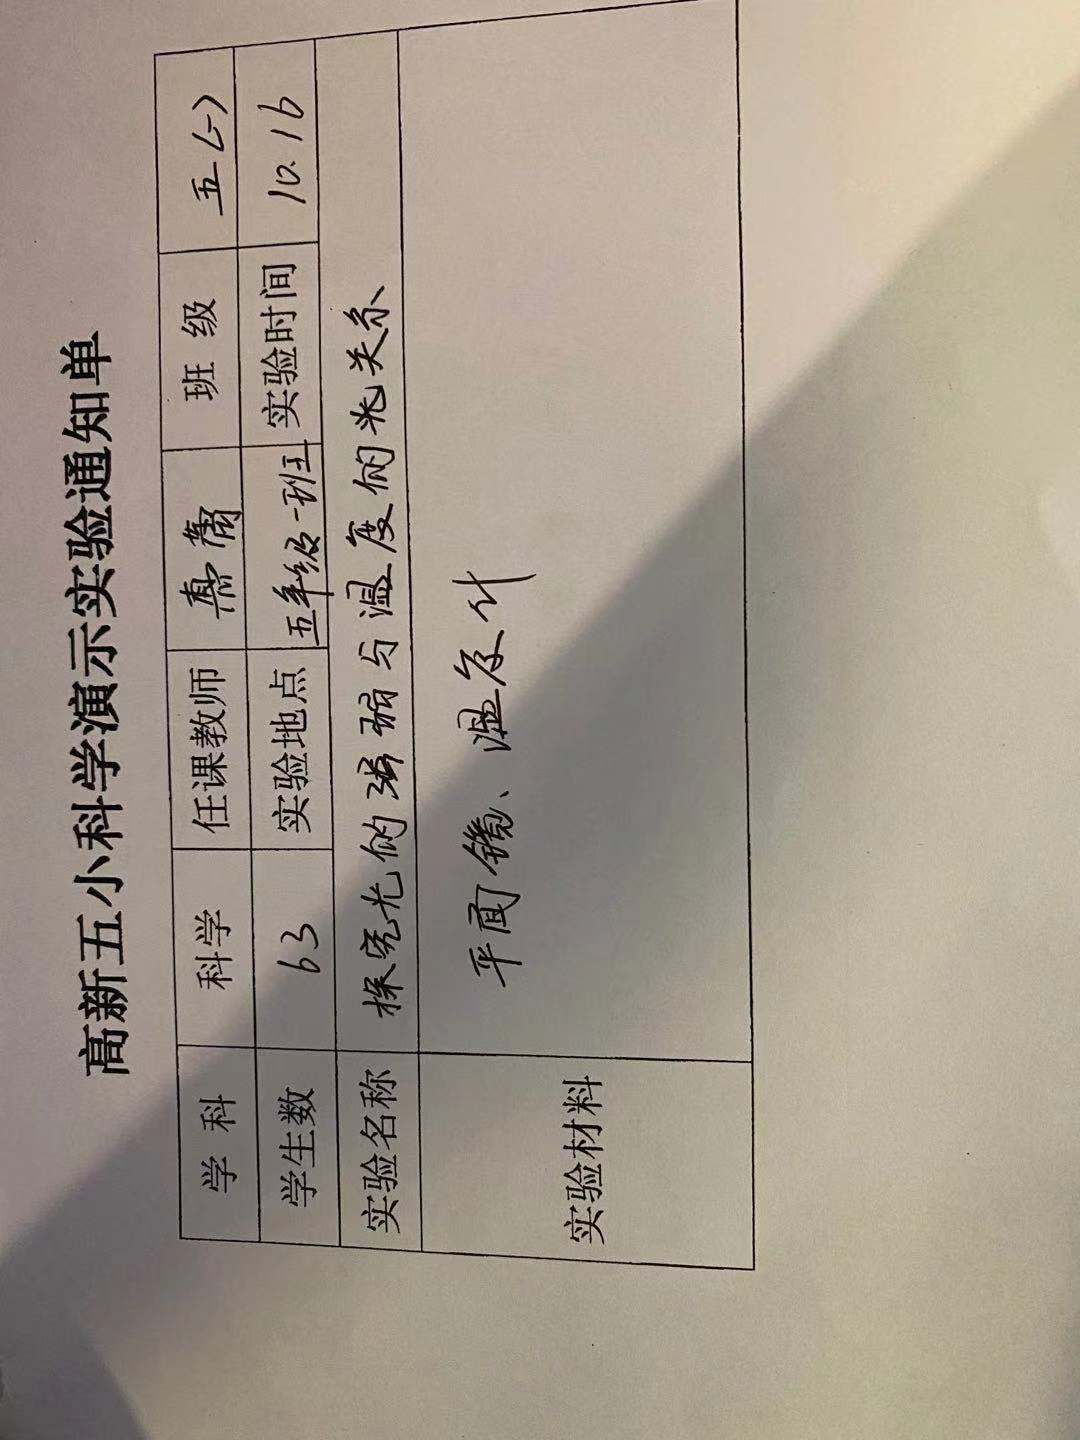 高新五小科学演示实验通知单
学 科 科学 任课教师 班 级 五(一)
学生数 63 实验地点 五年级一班 实验时间 10.16
实验名称 探究光的强弱与温度的光关系
实验材料 平面镜、温度计